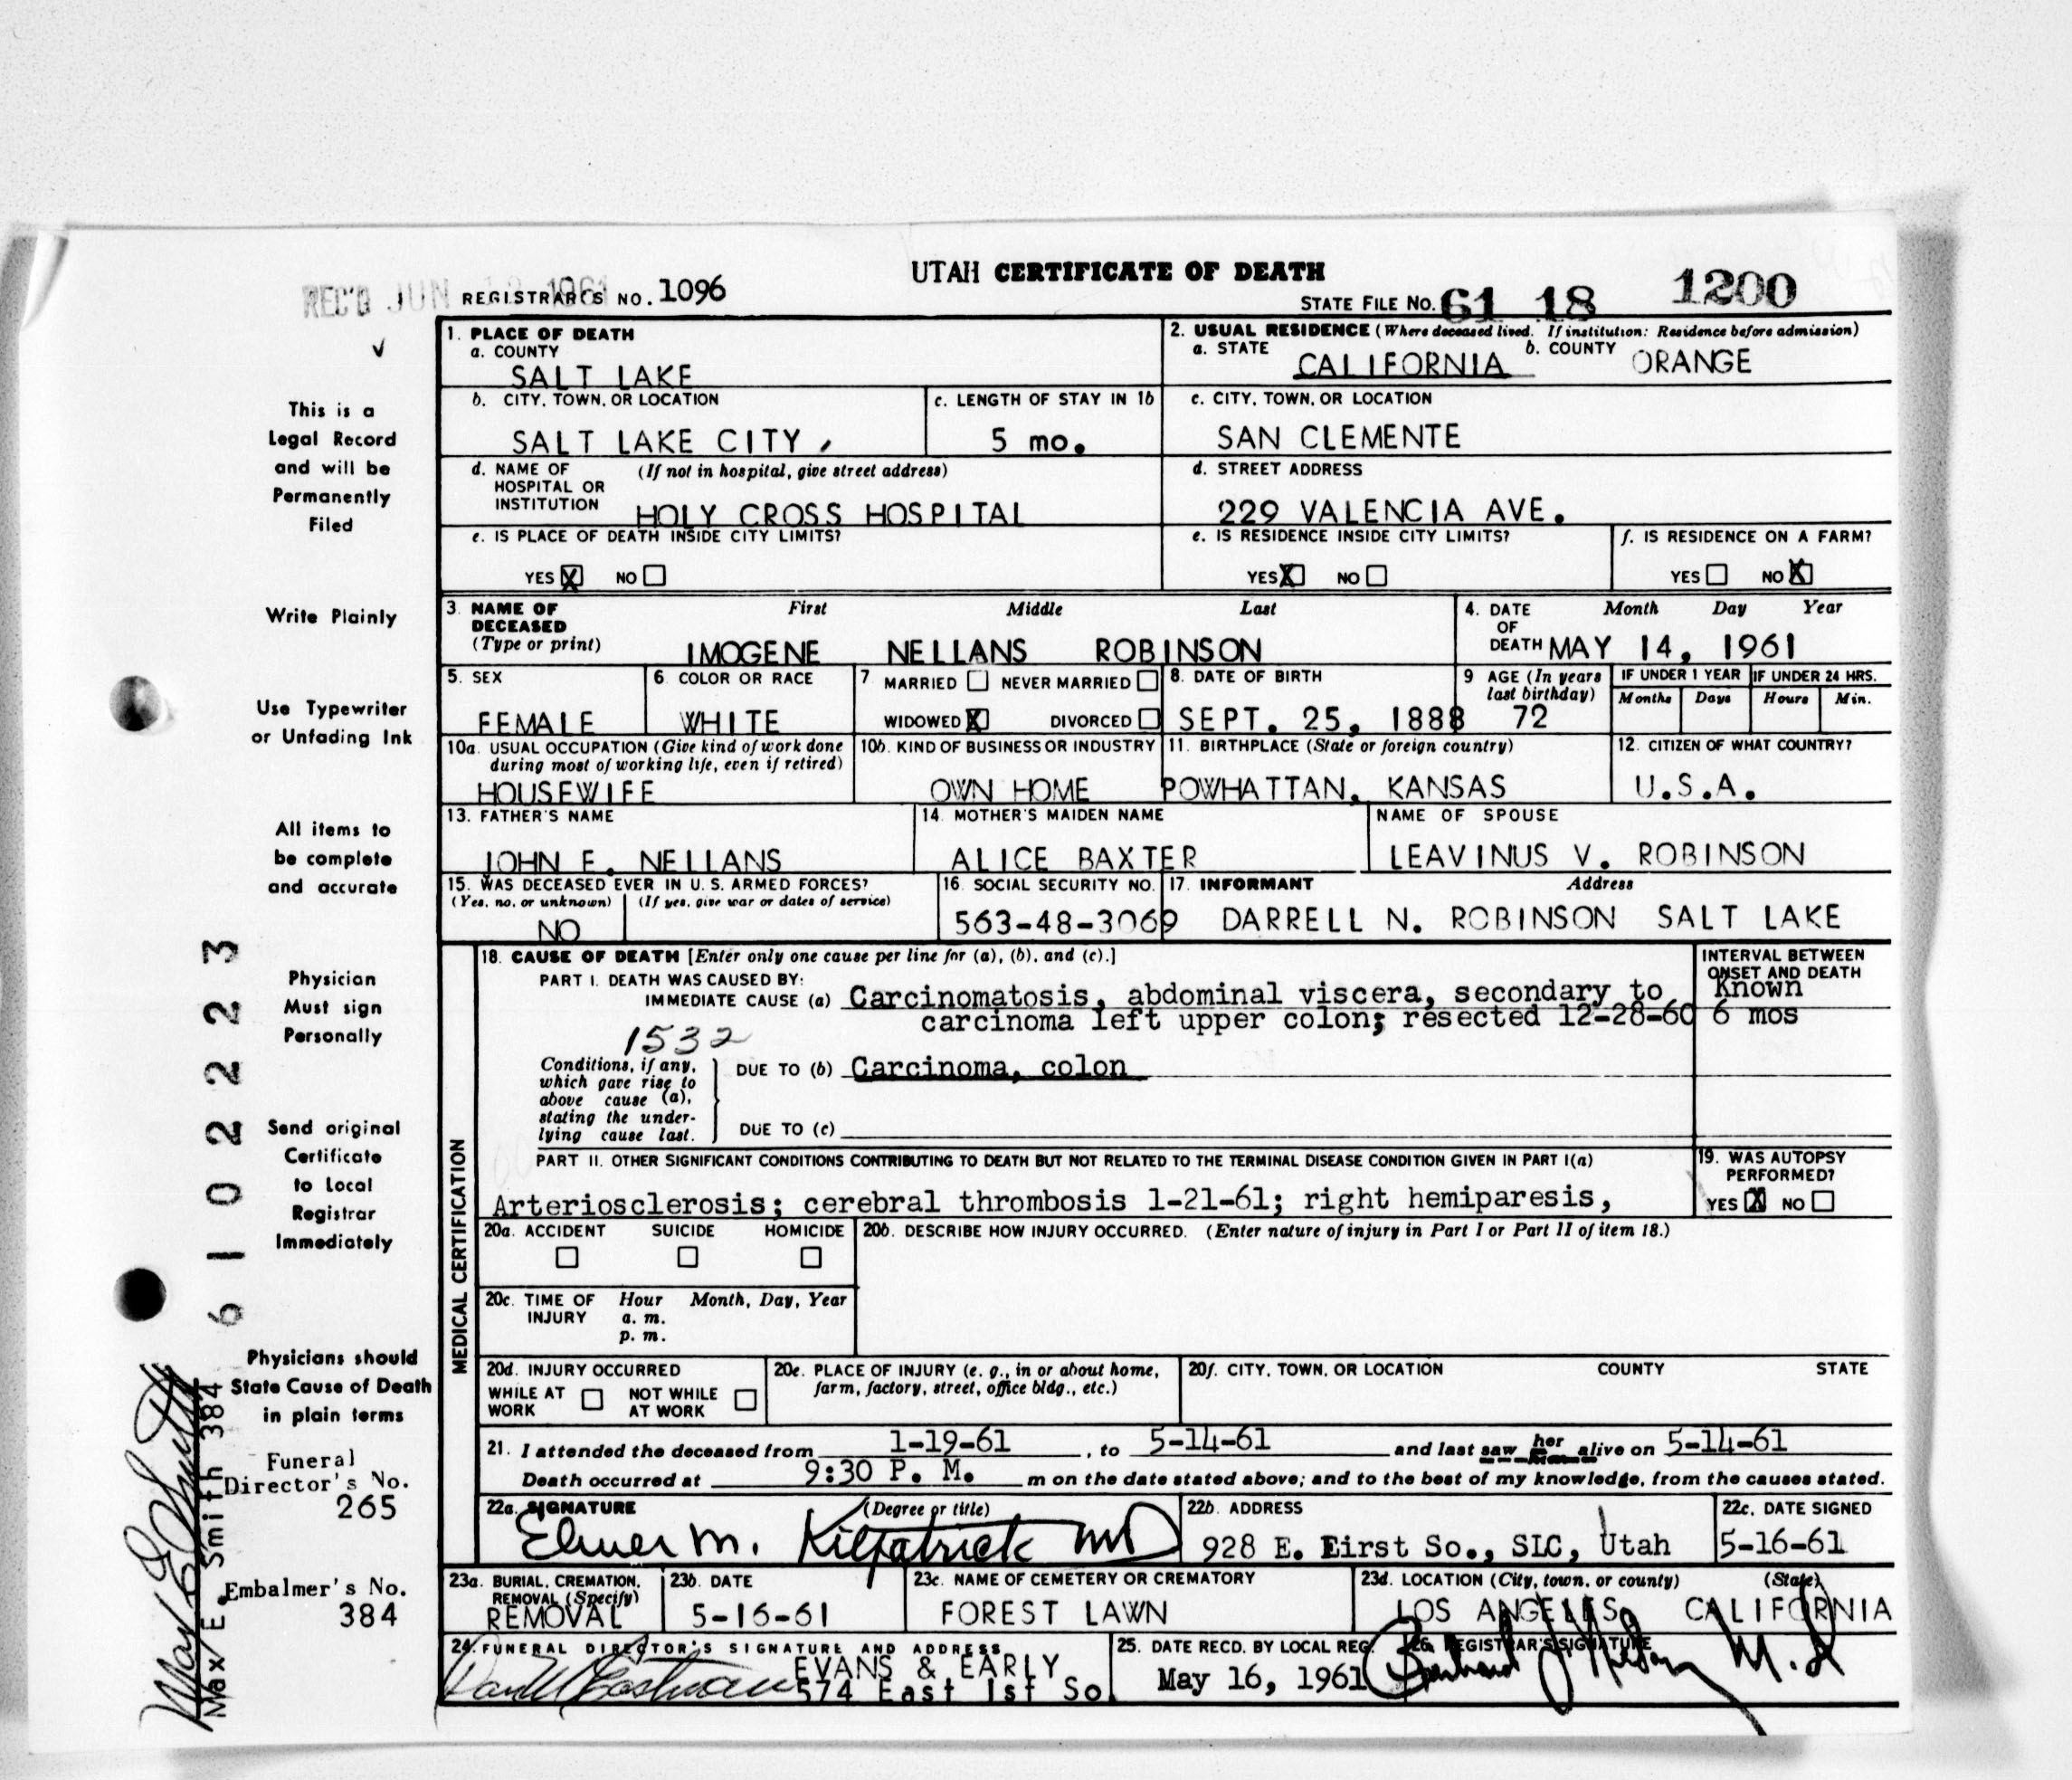 UTAH CERTIFICATE OF DEATH
REC'D JUN 1961
REGISTRAR'S NO. 1096
STATE FILE NO. 61 18 1200
1. PLACE OF DEATH
a. COUNTY
SALT LAKE
2. USUAL RESIDENCE (Where deceased lived. If institution: Residence before admission)
a. STATE CALIFORNIA b. COUNTY ORANGE
b. CITY, TOWN, OR LOCATION
SALT LAKE CITY,
c. LENGTH OF STAY IN 1b
5 mo.
c. CITY, TOWN, OR LOCATION
SAN CLEMENTE
d. NAME OF HOSPITAL OR INSTITUTION (If not in hospital, give street address)
HOLY CROSS HOSPITAL
d. STREET ADDRESS
229 VALENCIA AVE.
e. IS PLACE OF DEATH INSIDE CITY LIMITS?
YES X NO
e. IS RESIDENCE INSIDE CITY LIMITS?
YES X NO
f. IS RESIDENCE ON A FARM?
YES NO X
3. NAME OF DECEASED (Type or print)
First Middle Last
IMOGENE NELLANS ROBINSON
4. DATE OF DEATH Month Day Year
MAY 14, 1961
5. SEX
FEMALE
6. COLOR OR RACE
WHITE
7 MARRIED NEVER MARRIED
WIDOWED X DIVORCED
8. DATE OF BIRTH
SEPT. 25, 1888
9 AGE (In years last birthday)
72
IF UNDER 1 YEAR IF UNDER 24 HRS.
Months Days Hours Min.
10a. USUAL OCCUPATION (Give kind of work done during most of working life, even if retired)
HOUSEWIFE
10b. KIND OF BUSINESS OR INDUSTRY
OWN HOME
11. BIRTHPLACE (State or foreign country)
POWHATTAN, KANSAS
12. CITIZEN OF WHAT COUNTRY?
U.S.A.
13. FATHER'S NAME
JOHN E. NELLANS
14. MOTHER'S MAIDEN NAME
ALICE BAXTER
NAME OF SPOUSE
LEAVINUS V. ROBINSON
15. WAS DECEASED EVER IN U. S. ARMED FORCES?
(Yes, no, or unknown) (If yes, give war or dates of service)
NO
16. SOCIAL SECURITY NO.
563-48-3069
17. INFORMANT Address
DARRELL N. ROBINSON SALT LAKE
MEDICAL CERTIFICATION
18. CAUSE OF DEATH [Enter only one cause per line for (a), (b), and (c).]
PART I. DEATH WAS CAUSED BY:
IMMEDIATE CAUSE (a) Carcinomatosis, abdominal viscera, secondary to
carcinoma left upper colon; resected 12-28-60
INTERVAL BETWEEN ONSET AND DEATH
Known
6 mos
1532
Conditions, if any, which gave rise to above cause (a), stating the underlying cause last.
DUE TO (b) Carcinoma, colon
DUE TO (c)
PART II. OTHER SIGNIFICANT CONDITIONS CONTRIBUTING TO DEATH BUT NOT RELATED TO THE TERMINAL DISEASE CONDITION GIVEN IN PART I(a)
Arteriosclerosis; cerebral thrombosis 1-21-61; right hemiparesis,
19. WAS AUTOPSY PERFORMED?
YES X NO
20a. ACCIDENT SUICIDE HOMICIDE
20b. DESCRIBE HOW INJURY OCCURRED. (Enter nature of injury in Part I or Part II of item 18.)
20c. TIME OF INJURY Hour Month, Day, Year
a. m.
p. m.
20d. INJURY OCCURRED
WHILE AT WORK NOT WHILE AT WORK
20e. PLACE OF INJURY (e. g., in or about home, farm, factory, street, office bldg., etc.)
20f. CITY, TOWN, OR LOCATION COUNTY STATE
21. I attended the deceased from 1-19-61, to 5-14-61 and last saw her alive on 5-14-61
Death occurred at 9:30 P. M. m on the date stated above; and to the best of my knowledge, from the causes stated.
22a. SIGNATURE (Degree or title)
Elmer M. Kilpatrick MD
22b. ADDRESS
928 E. First So., SLC, Utah
22c. DATE SIGNED
5-16-61
23a. BURIAL, CREMATION, REMOVAL (Specify)
REMOVAL
23b. DATE
5-16-61
23c. NAME OF CEMETERY OR CREMATORY
FOREST LAWN
23d. LOCATION (City, town, or county) (State)
LOS ANGELES, CALIFORNIA
24. FUNERAL DIRECTOR'S SIGNATURE AND ADDRESS
EVANS & EARLY
574 East 1st So.
25. DATE RECD. BY LOCAL REG.
May 16, 1961
26. REGISTRAR'S SIGNATURE
M.D
This is a
Legal Record
and will be
Permanently
Filed
Write Plainly
Use Typewriter
or Unfading Ink
All items to
be complete
and accurate
Physician
Must sign
Personally
Send original
Certificate
to Local
Registrar
Immediately
Physicians should
State Cause of Death
in plain terms
Funeral
Director's No.
265
Embalmer's No.
384
61 02223
Max E Smith
Max E. Smith 384